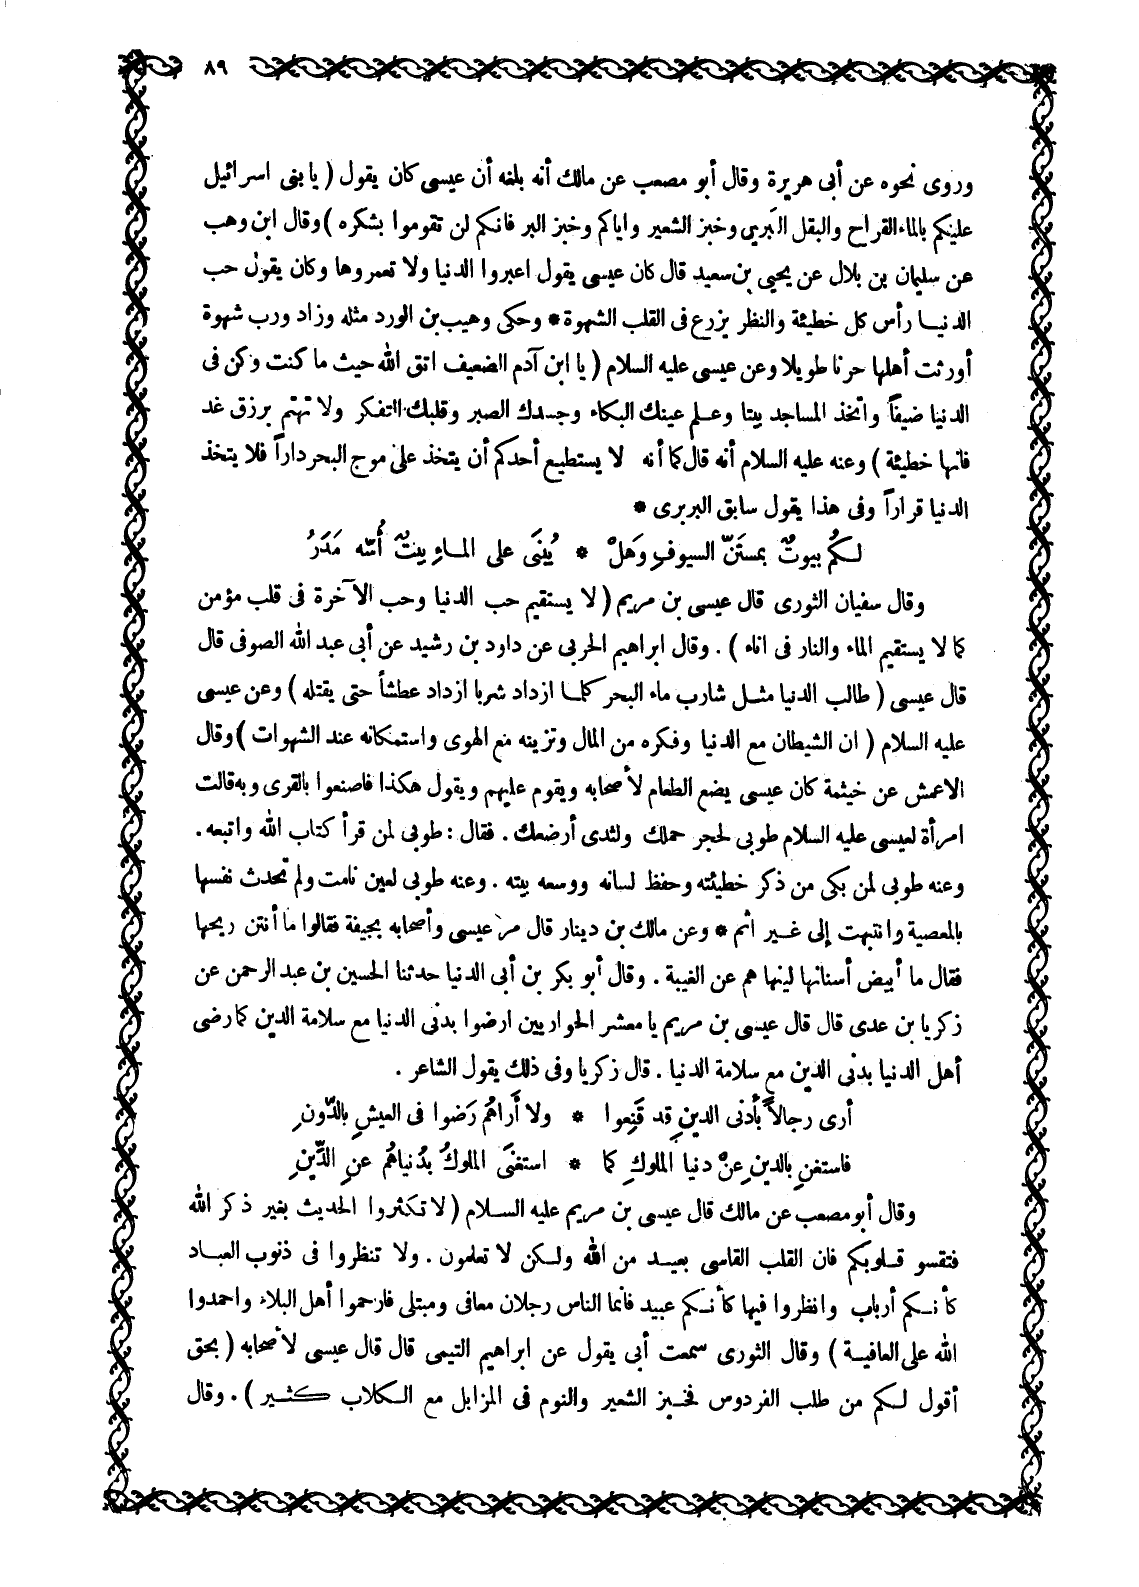 ٨٩
وروى نحوه عن أبى هريرة وقال أبو مصعب عن مالك أنه بلغه أن عيسى كان يقول ( يا بنى اسرائيل
عليكم بالماء القراح والبقل البري وخبز الشعير واياكم وخبز البر فانكم لن تقوموا بشكره ) وقال ابن وهب
عن سليمان بن بلال عن يحيى بن سعيد قال كان عيسى يقول اعبروا الدنيا ولا تعمروها وكان يقول حب
الدنيا رأس كل خطيئة والنظر يزرع فى القلب الشهوة * وحكى وهيب بن الورد مثله وزاد ورب شهوة
أورثت أهلها حزنا طويلا وعن عيسى عليه السلام ( يا ابن آدم الضعيف اتق الله حيث ما كنت وكن فى
الدنيا ضيفاً واتخذ المساجد بيتا وعلم عينك البكاء وجسدك الصبر وقلبك التفكر ولا تهتم برزق غد
فانها خطيئة ) وعنه عليه السلام أنه قال كما أنه لا يستطيع أحدكم أن يتخذ على موج البحر داراً فلا يتخذ
الدنيا قراراً وفى هذا يقول سابق البربرى *
لكُم بيوتٌ بمستَنّ السيوفِ وَهَلْ * يُبْنَى على الماءِ بيتٌ أُسّه مَدَرُ
وقال سفيان الثورى قال عيسى بن مريم ( لا يستقيم حب الدنيا وحب الآخرة فى قلب مؤمن
كما لا يستقيم الماء والنار فى اناء ) . وقال ابراهيم الحربى عن داود بن رشيد عن أبى عبد الله الصوفى قال
قال عيسى ( طالب الدنيا مثل شارب ماء البحر كلما ازداد شربا ازداد عطشاً حتى يقتله ) وعن عيسى
عليه السلام ( ان الشيطان مع الدنيا وفكره من المال وتزينه مع الهوى واستمكانه عند الشهوات ) وقال
الاعمش عن خيثمة كان عيسى يضع الطعام لأصحابه ويقوم عليهم ويقول هكذا فاصنعوا بالقرى وبه قالت
امرأة لعيسى عليه السلام طوبى لحجر حملك ولثدى أرضعك . فقال : طوبى لمن قرأ كتاب الله واتبعه .
وعنه طوبى لمن بكى من ذكر خطيئته وحفظ لسانه ووسعه بيته . وعنه طوبى لعين نامت ولم تحدث نفسها
بالمعصية وانتبهت إلى غير اثم * وعن مالك بن دينار قال مر عيسى وأصحابه بجيفة فقالوا ما أنتن ريحها
فقال ما أبيض أسنانها لينهاهم عن الغيبة . وقال أبو بكر بن أبى الدنيا حدثنا الحسين بن عبد الرحمن عن
زكريا بن عدى قال قال عيسى بن مريم يا معشر الحواريين ارضوا بدنى الدنيا مع سلامة الدين كما رضى
أهل الدنيا بدنى الدين مع سلامة الدنيا . قال زكريا وفى ذلك يقول الشاعر .
أرى رجالاً بأدنى الدينِ قد قَنِعوا * ولا أَراهُم رَضوا فى العيشِ بالدّونِ
فاستغنِ بالدينِ عنْ دنيا الملوكِ كما * استغنَى الملوكُ بدُنياهُم عنِ الدِّينِ
وقال أبو مصعب عن مالك قال عيسى بن مريم عليه السلام ( لا تكثروا الحديث بغير ذكر الله
فتقسو قلوبكم فان القلب القاسى بعيد من الله ولكن لا تعلمون . ولا تنظروا فى ذنوب العباد
كأنكم أرباب وانظروا فيها كأنكم عبيد فانما الناس رجلان معافى ومبتلى فارحموا أهل البلاء واحمدوا
الله على العافية ) وقال الثورى سمعت أبى يقول عن ابراهيم التيمى قال قال عيسى لأصحابه ( بحق
أقول لكم من طلب الفردوس فخبز الشعير والنوم فى المزابل مع الكلاب كثير ) . وقال